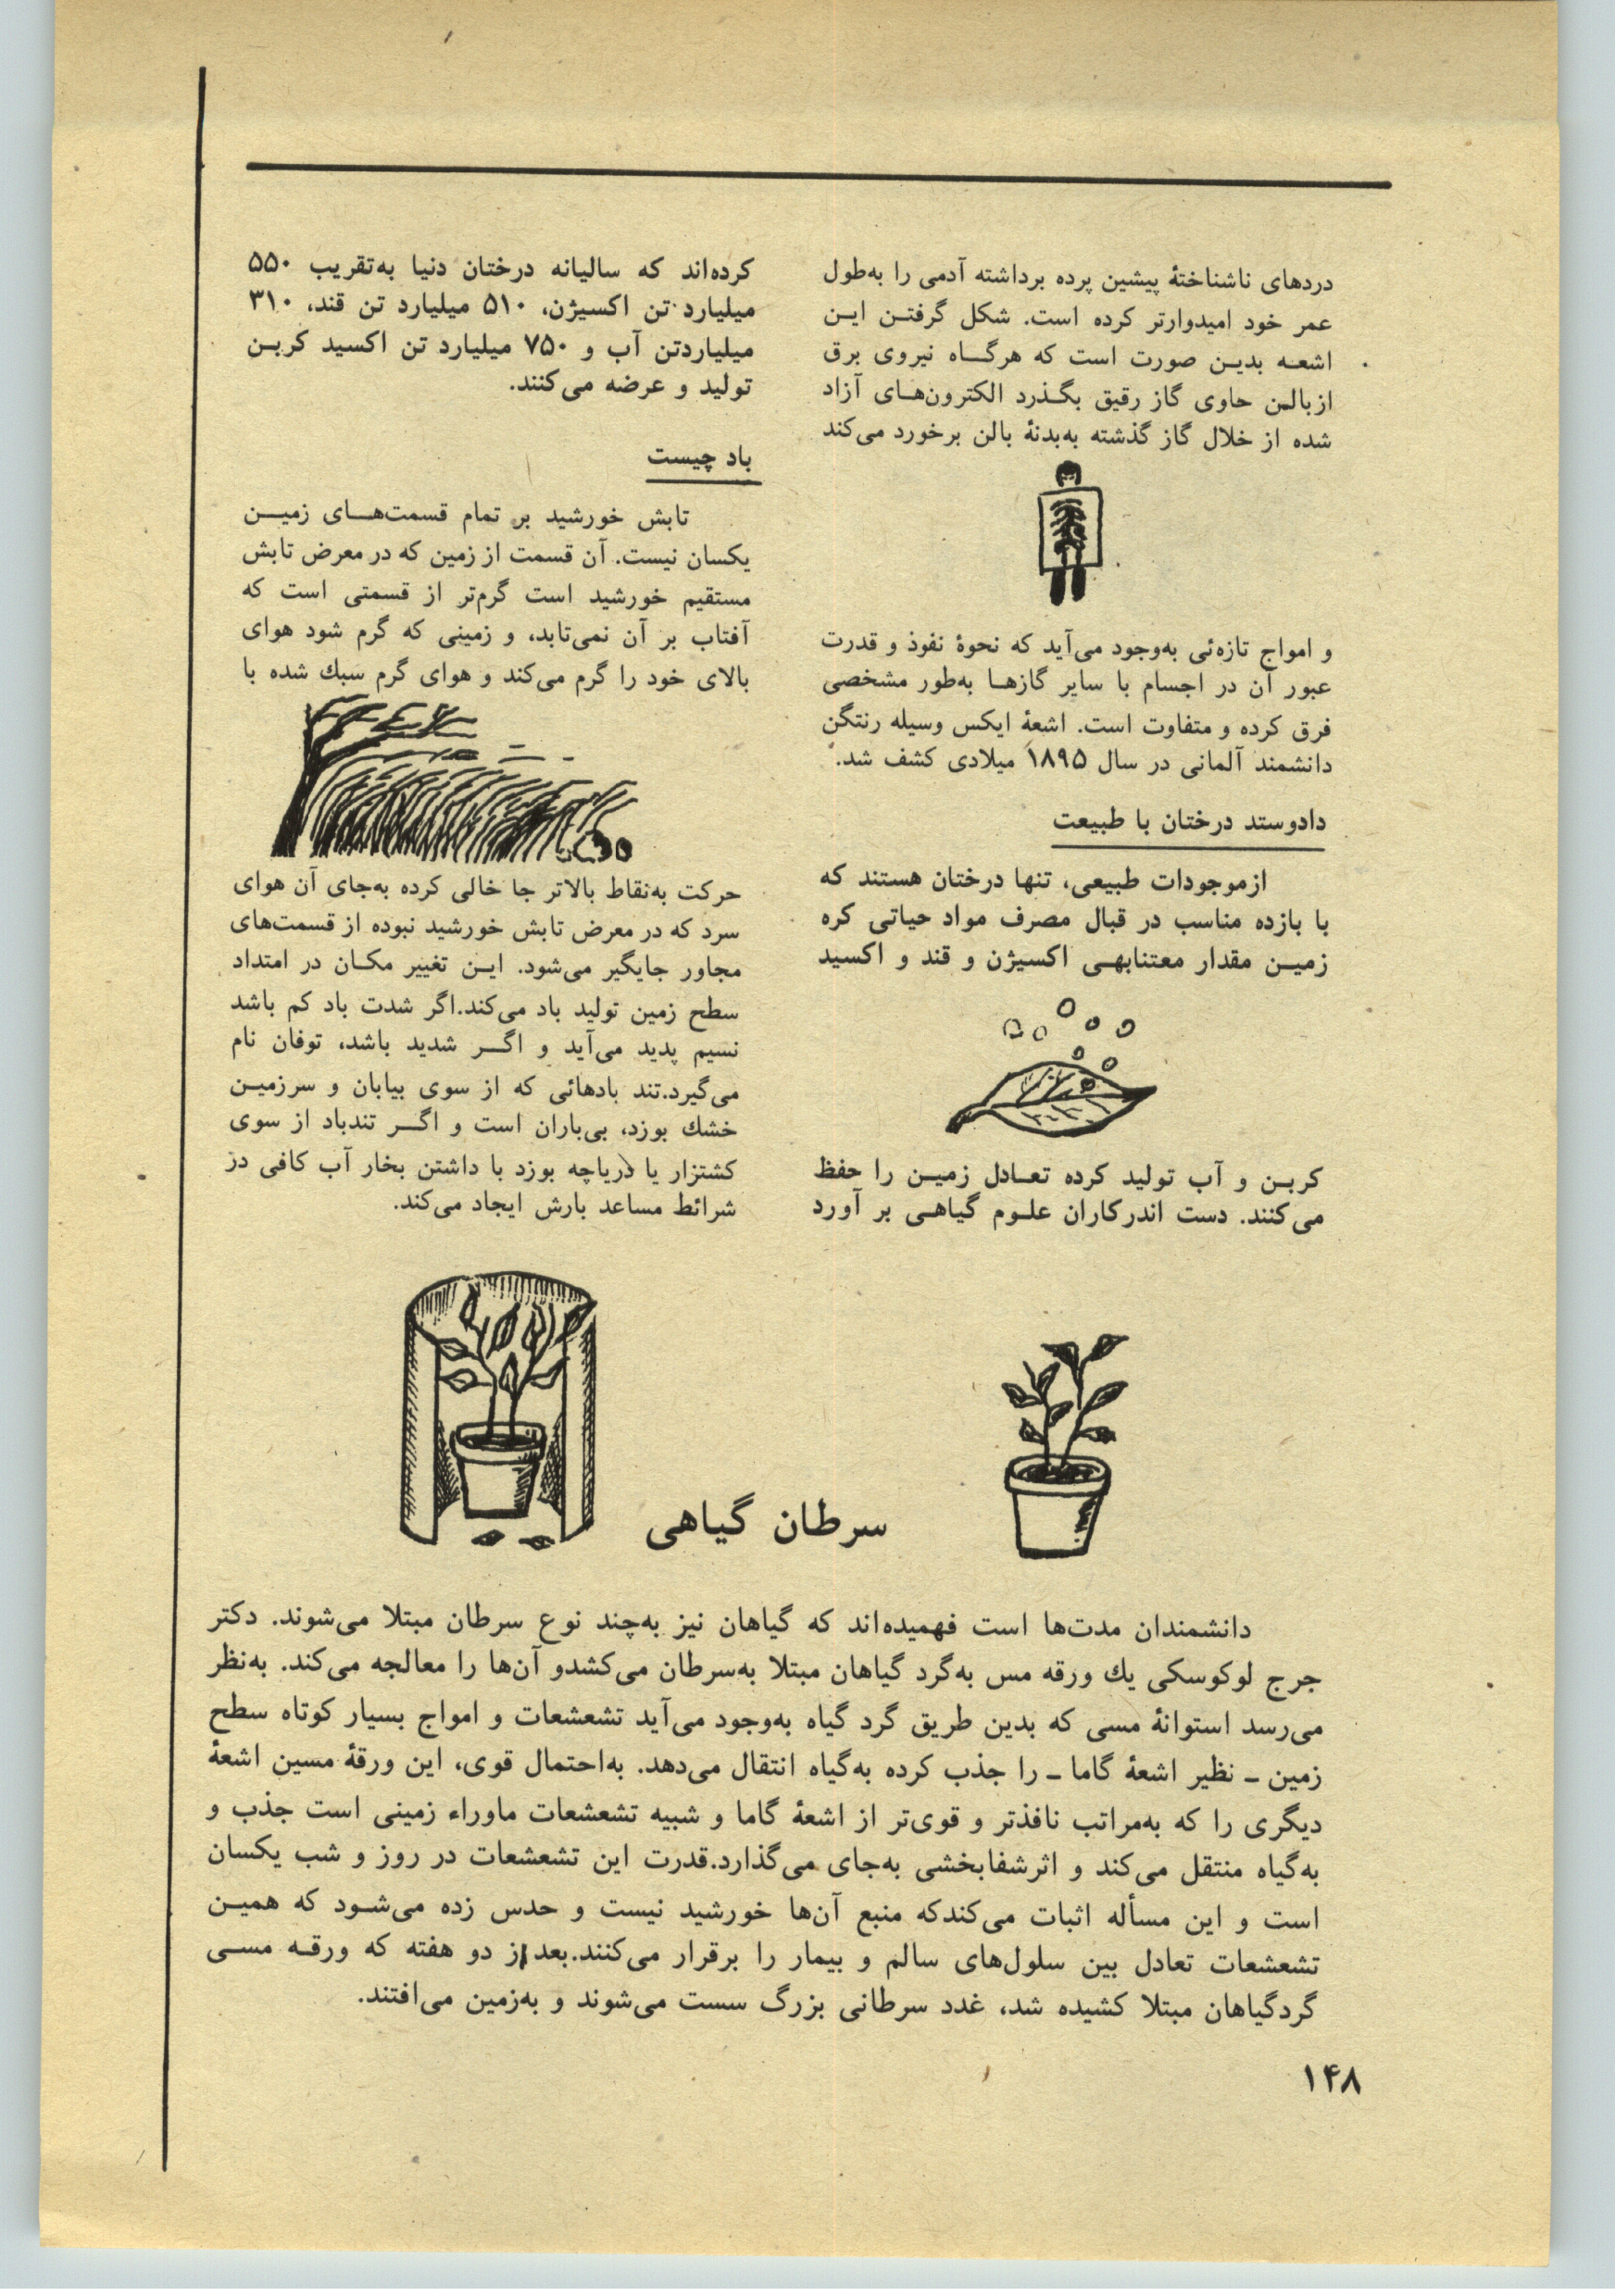 دردهای ناشناختهٔ پیشین پرده برداشته آدمی را به‌طول
عمر خود امیدوارتر کرده است. شکل گرفتـن ایـن
اشعـه بدیـن صورت است که هرگــاه نیروی برق
ازبالن حاوی گاز رقیق بگـذرد الکترون‌هـای آزاد
شده از خلال گاز گذشته به‌بدنهٔ بالن برخورد می‌کند
و امواج تازه‌ئی به‌وجود می‌آید که نحوهٔ نفوذ و قدرت
عبور آن در اجسام با سایر گازهـا به‌طور مشخصی
فرق کرده و متفاوت است. اشعهٔ ایکس وسیله رنتگن
دانشمند آلمانی در سال ۱۸۹۵ میلادی کشف شد.
دادوستد درختان با طبیعت
ازموجودات طبیعی، تنها درختان هستند که
با بازده مناسب در قبال مصرف مواد حیاتی کره
زمیـن مقدار معتنابهـی اکسیژن و قند و اکسید
کربـن و آب تولید کرده تعـادل زمیـن را حفظ
می‌کنند. دست اندرکاران علـوم گیاهـی بر آورد
کرده‌اند که سالیانه درختان دنیا به‌تقریب ۵۵۰
میلیارد تن اکسیژن، ۵۱۰ میلیارد تن قند، ۳۱۰
میلیاردتن آب و ۷۵۰ میلیارد تن اکسید کربـن
تولید و عرضه می‌کنند.
باد چیست
تابش خورشید بر تمام قسمت‌هـای زمیـن
یکسان نیست. آن قسمت از زمین که در معرض تابش
مستقیم خورشید است گرم‌تر از قسمتی است که
آفتاب بر آن نمی‌تابد، و زمینی که گرم شود هوای
بالای خود را گرم می‌کند و هوای گرم سبك شده با
حرکت به‌نقاط بالاتر جا خالی کرده به‌جای آن هوای
سرد که در معرض تابش خورشید نبوده از قسمت‌های
مجاور جایگیر می‌شود. ایـن تغییر مکـان در امتداد
سطح زمین تولید باد می‌کند.اگر شدت باد کم باشد
نسیم پدید می‌آید و اگــر شدید باشد، توفان نام
می‌گیرد.تند بادهائی که از سوی بیابان و سرزمیـن
خشك بوزد، بی‌باران است و اگــر تندباد از سوی
کشتزار یا دریاچه بوزد با داشتن بخار آب کافی در
شرائط مساعد بارش ایجاد می‌کند.
سرطان گیاهی
دانشمندان مدت‌ها است فهمیده‌اند که گیاهان نیز به‌چند نوع سرطان مبتلا می‌شوند. دکتر
جرج لوکوسکی یك ورقه مس به‌گرد گیاهان مبتلا به‌سرطان می‌کشدو آن‌ها را معالجه می‌کند. به‌نظر
می‌رسد استوانهٔ مسی که بدین طریق گرد گیاه به‌وجود می‌آید تشعشعات و امواج بسیار کوتاه سطح
زمین ـ نظیر اشعهٔ گاما ـ را جذب کرده به‌گیاه انتقال می‌دهد. به‌احتمال قوی، این ورقهٔ مسین اشعهٔ
دیگری را که به‌مراتب نافذتر و قوی‌تر از اشعهٔ گاما و شبیه تشعشعات ماوراء زمینی است جذب و
به‌گیاه منتقل می‌کند و اثرشفابخشی به‌جای می‌گذارد.قدرت این تشعشعات در روز و شب یکسان
است و این مسأله اثبات می‌کندکه منبع آن‌ها خورشید نیست و حدس زده می‌شـود که همیـن
تشعشعات تعادل بین سلول‌های سالم و بیمار را برقرار می‌کنند.بعد از دو هفته که ورقـه مسـی
گردگیاهان مبتلا کشیده شد، غدد سرطانی بزرگ سست می‌شوند و به‌زمین می‌افتند.
۱۴۸